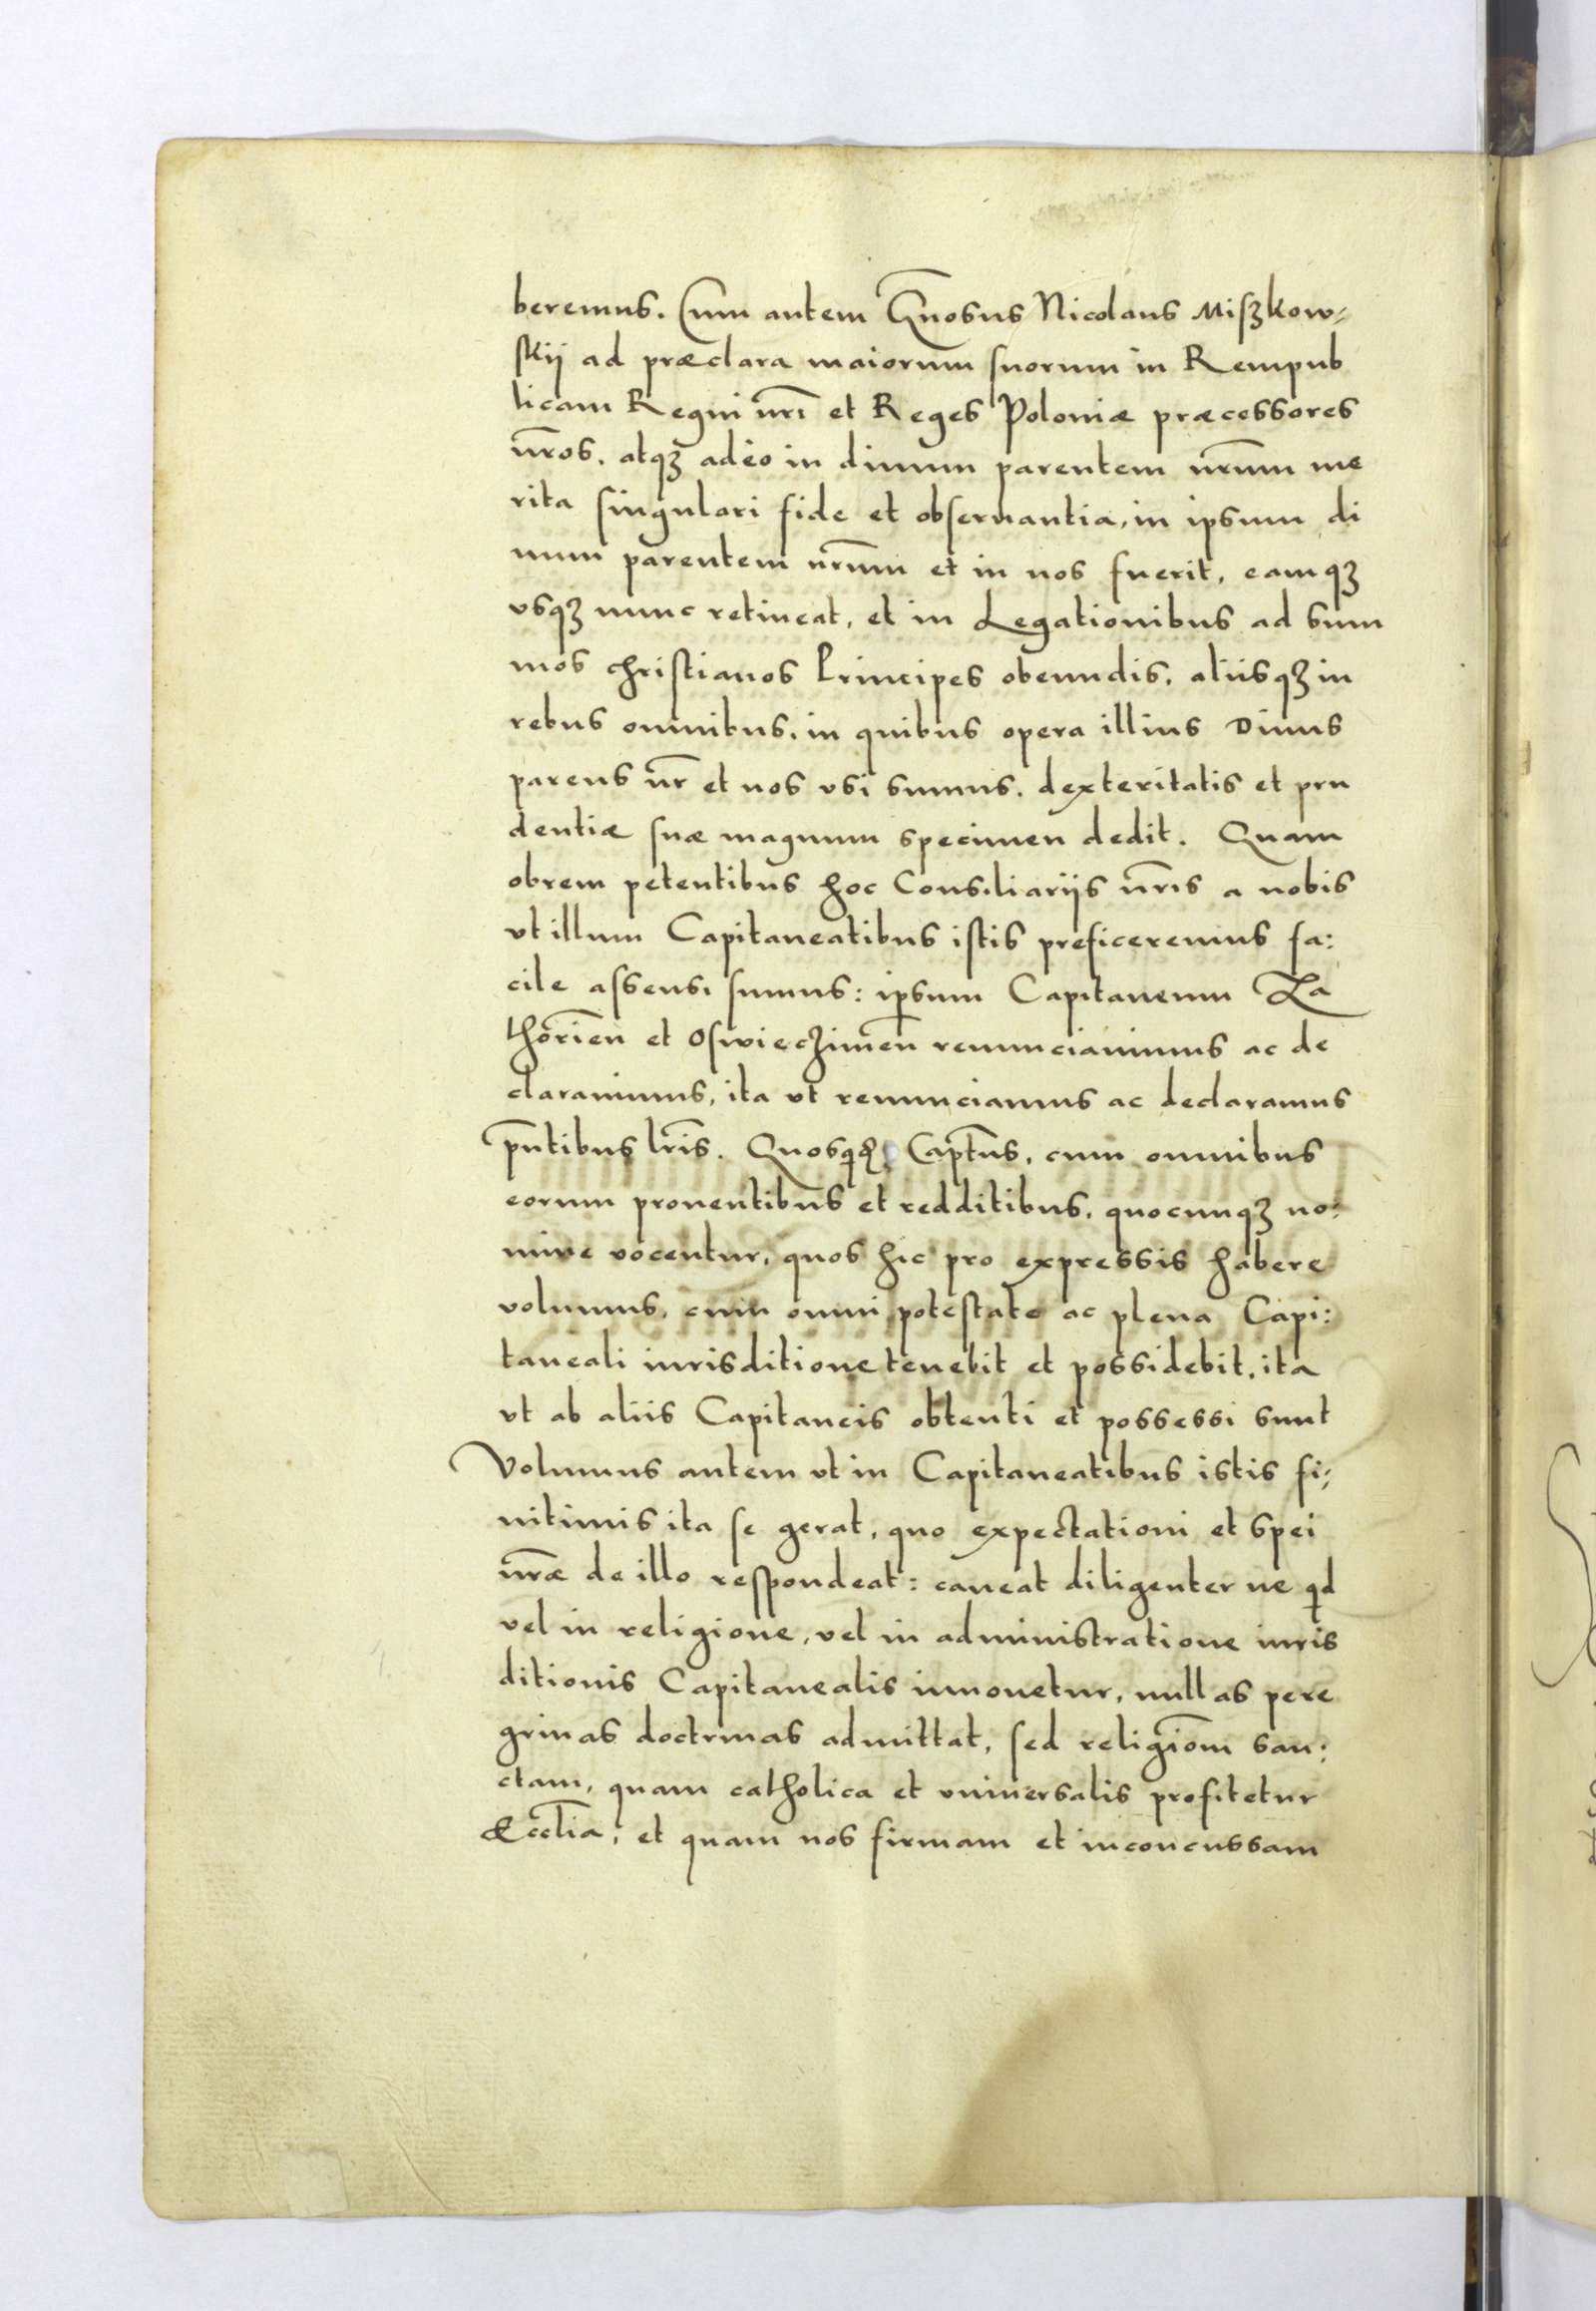 beremus. Cum autem Gn̄osus Nicolaus Miſzkow⸗
ſkij ad præclara maiorum ſuorum in Rempub
licam Regni nr̄i et Reges Poloniæ præcessores
nr̄os. atqꝫ adeo in diuum parentem nr̄um me
rita ſingulari fide et obſeruantia, in ipsum di
uum parentem nr̄um et in nos fuerit, eamqꝫ
vsqꝫ nunc retineat, et in Legationibus ad sum
mos chriſtianos Principes obeundis. aliisqꝫ in
rebus omnibus. in quibus opera illius Diuus
parens nr̄ et nos vsi sumus. dexteritatis et pru
dentiæ ſuæ magnum specimen dedit. Quam
obrem petentibus hoc Consiliarijs nr̄is a nobis
vt illum Capitaneatibus iſtis preficeremus fa:
cile aſsensi ſumus: ip̄sum Capitaneum Za
thorien̄ et Oſwieczimen̄ renunciauimus ac de
clarauimus, ita vt renunciamus ac declaramus
pn̄tibus lr̄is. Quosqid Capt̄us, cum omnibus
eorum prouentibus et redditibus. quocunqꝫ no:
mine vocentur, quos hic pro expressis habere
volumus. cum omni poteſtate ac plena Capi:
taneali iurisditione tenebit et possidebit. ita
vt ab aliis Capitaneis obtenti et possessi sunt
Volumus autem vt in Capitaneatibus istis fi⸗
nitimis ita ſe gerat, quo expectationi et spei
nr̄æ de illo reſpondeat: caueat diligenter ne qid
vel in religione, vel in administratione iuris
ditionis Capitanealis innouetur, nullas pere
grinas doctrinas admittat, ſed religiōm san:
ctam, quam catholica et vniuersalis profitetur
Eccl̄ia, et quam nos firmam et inconcussam